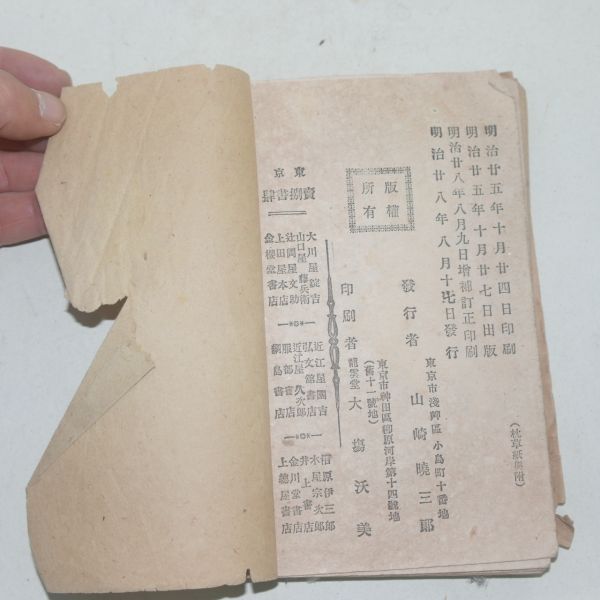 明治廿五年十月廿四日印刷
明治廿五年十月廿七日出版
明治廿八年八月九日增補訂正印刷
明治廿八年八月十七日發行
東京市淺艸區小島町十番地
發行者 山崎曉三郎
東京市神田區柳原河岸第十四號地
(舊十一號地)
印刷者 龍雲堂 大塲沃美
版權所有
東京
賣捌書肆
大川屋錠吉
山口屋藤兵衛
辻岡屋文助
上田屋本店
金櫻堂書店
近江屋園吉
弘文館書店
近江屋久次郎
服部書店
綱島書店
榴原伊三郎
木屋宗次郎
井上書店
金川堂書店
上總屋書店